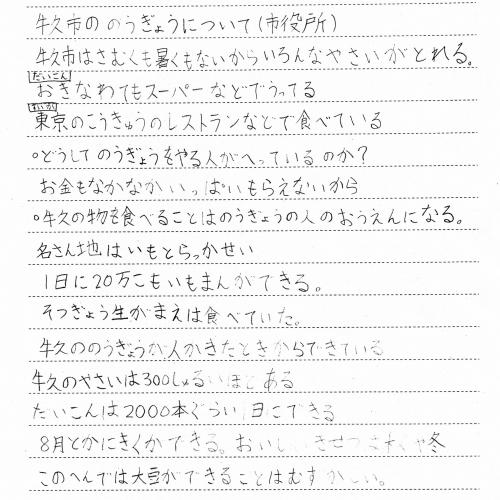 牛久市の のうぎょうについて(市役所)
牛久市はさむくも暑くもないからいろんなやさいがとれる。
だいこん
おきなわでもスーパーなどでうってる
すいか
東京のこうきゅうのレストランなどで食べている
○どうして のうぎょうをやる人がへっているのか?
お金もなかなかいっぱいもらえないから
○牛久の物を食べることはのうぎょうの人のおうえんになる。
名さん地はいもとらっかせい
1日に20万こもいもまんができる。
そつぎょう生がまえは食べていた。
牛久ののうぎょうが人がきたときからできている
牛久のやさいは300しゅるいほどある
だいこんは2000本ぐらい1日にできる
8月とかにきくができる。おいしい きせつ や冬
このへんでは大豆ができることはむずかしい。